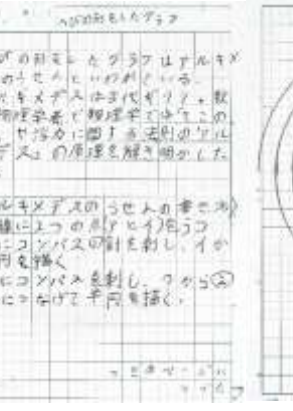 へびの形をしたグラフ
びの形をしたグラフはアルキメ
のうせんといわれている。
キメデスは古代ギリシャ、数
物理学者で物理学ではてこの
や浮力に関する法則のアル
デス」の原理を解き明かした
ルキメデスのうせんの書き方》
線に2つの点(アとイ)をうつ
にコンパスの針を刺し、イか
円を描く
にコンパスを刺し、アから②
につなげて半円を描く。